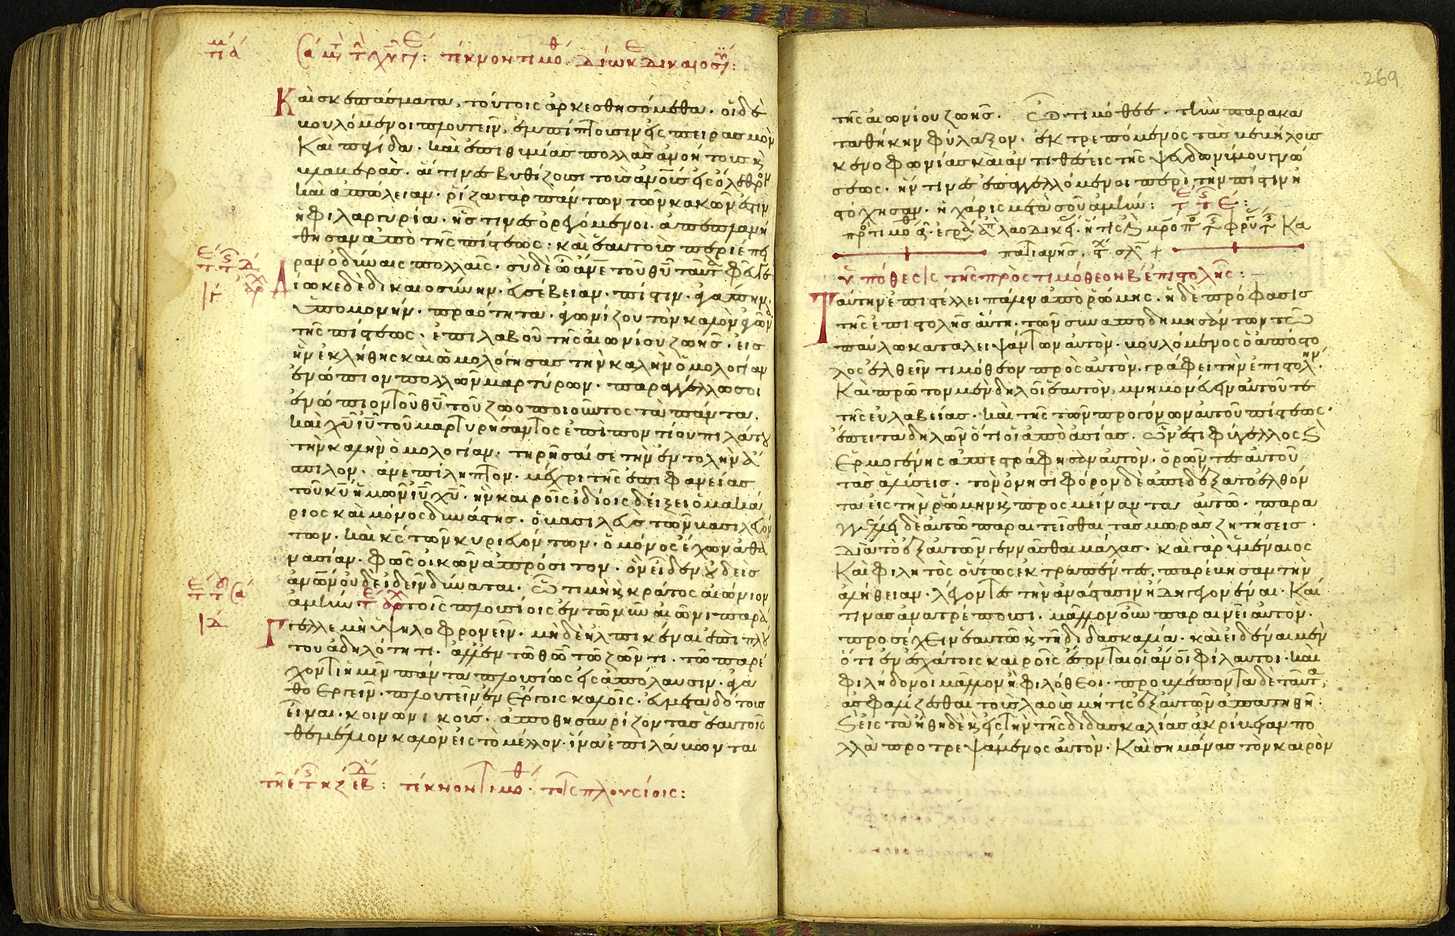 Καὶ σκεπάσματα, τούτοις ἀρκεσθησόμεθα· οἱ δὲ
βουλόμενοι πλουτεῖν, ἐμπίπτουσιν εἰς πειρασμὸν
καὶ παγίδα· καὶ ἐπιθυμίας πολλὰς ἀνοήτους κ
βλαβεράς· αἵτινες βυθίζουσι τοὺς ἀνους εἰς ὄλεθρον
καὶ ἀπώλειαν· ῥίζα γὰρ πάντων τῶν κακῶν ἐστιν
ἡ φιλαργυρία· ἧς τινες ὀρεγόμενοι ἀπεπλανή
θησαν ἀπὸ τῆς πίστεως· καὶ ἑαυτοὺς περιέπει
ραν ὀδύναις πολλαῖς· σὺ δὲ ὦ ἄνε τοῦ θυ ταῦτα φεῦγε
Δίωκε δὲ δικαιοσύνην· εὐσέβειαν· πίστιν· ἀγάπην·
ὑπομονήν· πραότητα· ἀγωνίζου τὸν καλὸν ἀγῶνα
τῆς πίστεως· ἐπιλαβοῦ τῆς αἰωνίου ζωῆς· εἰς
ἣν ἐκλήθης καὶ ὡμολόγησας τὴν καλὴν ὁμολογίαν
ἐνώπιον πολλῶν μαρτύρων· παραγγέλλω σοι
ἐνώπιον τοῦ θυ τοῦ ζωοποιοῦντος τὰ πάντα,
καὶ χυ ιυ τοῦ μαρτυρήσαντος ἐπὶ ποντίου πιλάτου
τὴν καλὴν ὁμολογίαν· τηρῆσαί σε τὴν ἐντολὴν ἄ
σπιλον· ἀνεπίληπτον· μέχρι τῆς ἐπιφανείας
τοῦ κυ ἡμῶν ιυ χυ· ἣν καιροῖς ἰδίοις δείξει ὁ μακά
ριος καὶ μόνος δυνάστης· ὁ βασιλεὺς τῶν βασιλευόν
των· καὶ κς τῶν κυριευόντων· ὁ μόνος ἔχων ἀθα
νασίαν· φῶς οἰκῶν ἀπρόσιτον· ὃν εἶδεν οὐδεὶς
ανων οὐδὲ ἰδεῖν δύναται· ᾧ τιμὴ κ κράτος αἰώνιον
ἀμήν· τοῖς πλουσίοις ἐν τῷ νῦν αἰῶνι παράγ
γελλε μὴ ὑψηλοφρονεῖν· μηδὲ ἠλπικέναι ἐπὶ πλού
του ἀδηλότητι· ἀλλ' ἐν τῷ θω τῷ ζῶντι· τῷ παρέ
χοντι ἡμῖν πάντα πλουσίως εἰς ἀπόλαυσιν· ἀγα
θοεργεῖν· πλουτεῖν ἐν ἔργοις καλοῖς· εὐμεταδότους
εἶναι· κοινωνικούς· ἀποθησαυρίζοντας ἑαυτοῖς
θεμέλιον καλὸν εἰς τὸ μέλλον· ἵνα ἐπιλάβωνται
τέκνον τιμόθ· τοῖς πλουσίοις:
269
τῆς αἰωνίου ζωῆς· ὦ τιμόθεε· τὴν παρακα
ταθήκην φύλαξον· ἐκτρεπόμενος τὰς βεβήλους
κενοφωνίας καὶ ἀντιθέσεις τῆς ψευδωνύμου γνώ
σεως· ἥν τινες ἐπαγγελλόμενοι περὶ τὴν πίστιν ἠ
στόχησαν· ἡ χάρις μετὰ σοῦ ἀμήν:
ὑπόθεσις τῆς πρὸς τιμόθεον β ἐπιστολῆς:
Ταύτην ἐπιστέλλει πάλιν ἀπὸ ῥώμης· ἡ δὲ πρόφασις
τῆς ἐπιστολῆς αὕτη· τῶν συναποδημησάντων τῷ
παύλῳ καταλειψάντων αὐτόν· βουλόμενος ὁ ἀπόστο
λος ἐλθεῖν τιμόθεον πρὸς αὐτὸν· γράφει τὴν ἐπιστολήν·
Καὶ πρῶτον μὲν δηλοῖ ἑαυτὸν, μνημονεύειν αὐτοῦ τε
τῆς εὐλαβείας· καὶ τῆς τῶν προγόνων αὐτοῦ πίστεως·
ἔπειτα δηλῶν ὅτι οἱ ἀπὸ ἀσίας· ὧν ἐστι φύγελλος κ
Ἑρμογένης ἀπεστράφησαν αὐτόν· ὁρῶντες αὐτοῦ
τὰς ἁλύσεις· τὸν ὀνησιφόρον δὲ ἀπεδέξατο ἐλθόν
τα εἰς τὴν ῥώμην κ προσμείναντα αὐτῷ· παραγ
γέλλει δὲ αὐτῷ παραιτεῖσθαι τὰς μωρὰς ζητήσεις·
διὰ τὸ ἐξ αὐτῶν γεννᾶσθαι μάχας· καὶ γὰρ ὑμέναιος
Καὶ φιλητὸς οὕτως ἐκτραπέντες, παρέβησαν τὴν
ἀλήθειαν· λέγοντες τὴν ἀνάστασιν ἤδη γεγονέναι· Καί
τινας ἀνατρέπουσι· μᾶλλον οὖν παραινεῖ αὐτὸν·
προσέχειν ἑαυτῷ κ τῇ διδασκαλίᾳ· καὶ εἰδέναι μὲν
ὅτι ἐν ἐσχάτοις καιροῖς ἔσονται οἱ ανοι φίλαυτοι· καὶ
φιλήδονοι μᾶλλον ἢ φιλόθεοι· προβλέποντα δὲ ταῦτα,
ἀσφαλίζεσθαι τοὺς λαοὺς μή τις ἐξ αὐτῶν ἀπατηθῇ·
λλὰ προτρεψάμενος αὐτόν· Καὶ σημάνας τὸν καιρὸν